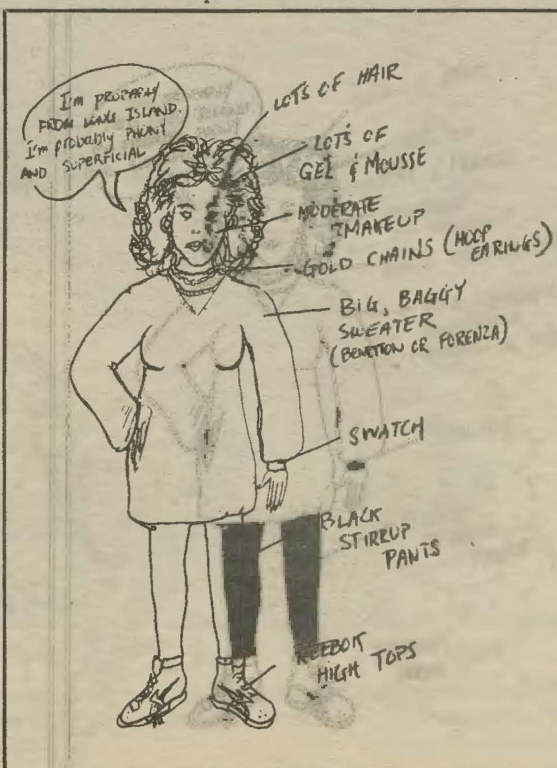 I'm probably
FROM LONG ISLAND.
I'm probably PHONY
AND SUPERFICIAL
LOTS OF HAIR
LOTS OF
GEL & MOUSSE
MODERATE
MAKEUP
GOLD CHAINS (HOOP
EARINGS)
BIG, BAGGY
SWEATER
(BENETTON OR FORENZA)
SWATCH
BLACK
STIRRUP
PANTS
REEBOK
HIGH TOPS